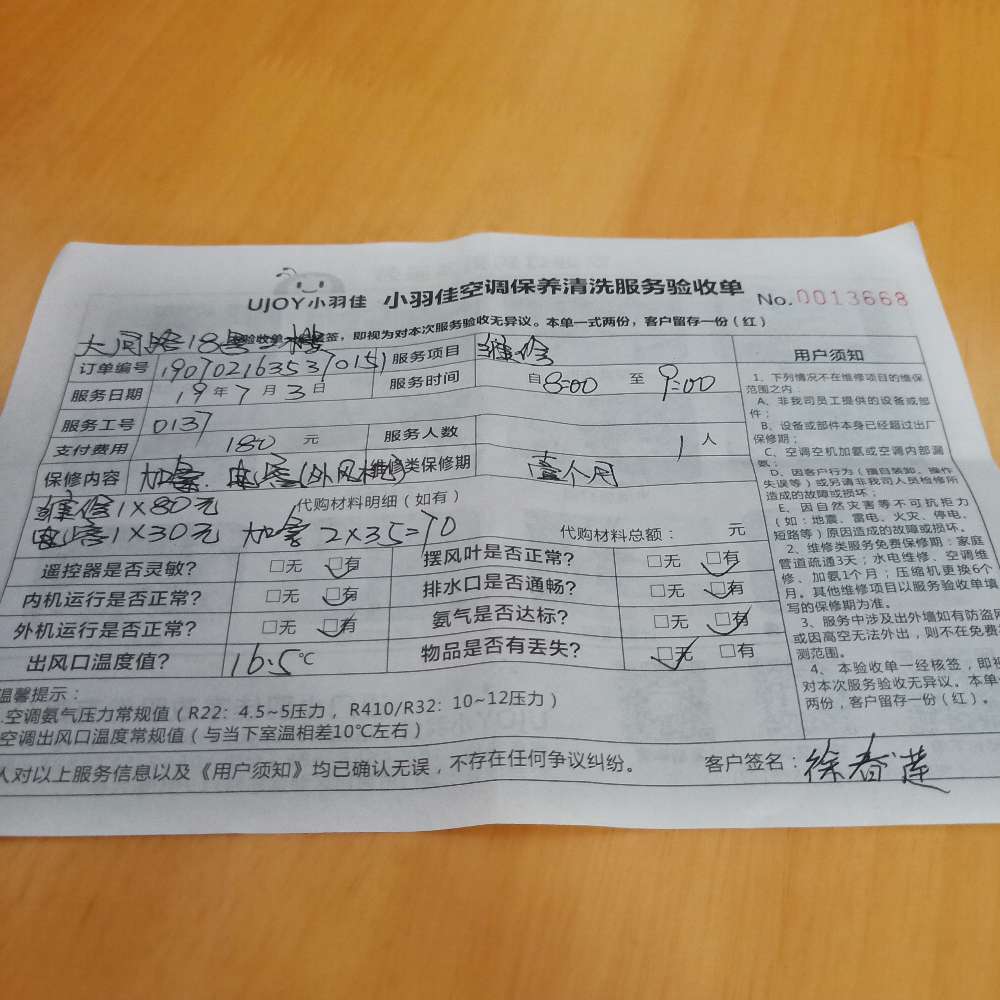 UJOY小羽佳 小羽佳空调保养清洗服务验收单 No.0013668
大同路18号一楼 验收单 签，即视为对本次服务验收无异议。本单一式两份，客户留存一份（红）
订单编号 1907021635370151 服务项目 维修
服务日期 19年7月3日 服务时间 自8:00至9:00
服务工号 0137
支付费用 180元 服务人数 1人
保修内容 加氨. 电容(外风机) 维修类保修期 壹个月
维修1×80元 代购材料明细（如有）
电容1×30元 加氨 2×35=70 代购材料总额： 元
遥控器是否灵敏？ □无 □有 摆风叶是否正常？ □无 □有
内机运行是否正常？ □无 □有 排水口是否通畅？ □无 □有
外机运行是否正常？ □无 □有 氨气是否达标？ □无 □有
出风口温度值？ 16.5℃ 物品是否有丢失？ □无 □有
温馨提示：
.空调氨气压力常规值（R22：4.5~5压力， R410/R32：10~12压力）
空调出风口温度常规值（与当下室温相差10℃左右）
人对以上服务信息以及《用户须知》均已确认无误，不存在任何争议纠纷。 客户签名：徐春莲
用户须知
1、下列情况不在维修项目的维保
范围之内：
A、非我司员工提供的设备或部
件；
B、设备或部件本身已经超过出厂
保修期；
C、空调空机加氨或空调内部漏
氨；
D、因客户行为（擅自装卸、操作
失误等）或另请非我司人员检修所
造成的故障或损坏；
E、因自然灾害等不可抗拒力
（如：地震、雷电、火灾、停电、
短路等）原因造成的故障或损坏。
2、维修类服务免费保修期：家庭
管道疏通3天；水电维修、空调维
修、加氨1个月；压缩机更换6个
月。其他维修项目以服务验收单填
写的保修期为准。
3、服务中涉及出外墙如有防盗网
或因高空无法外出，则不在免费
测范围。
4、本验收单一经核签，即视
对本次服务验收无异议。本单
两份，客户留存一份（红）。